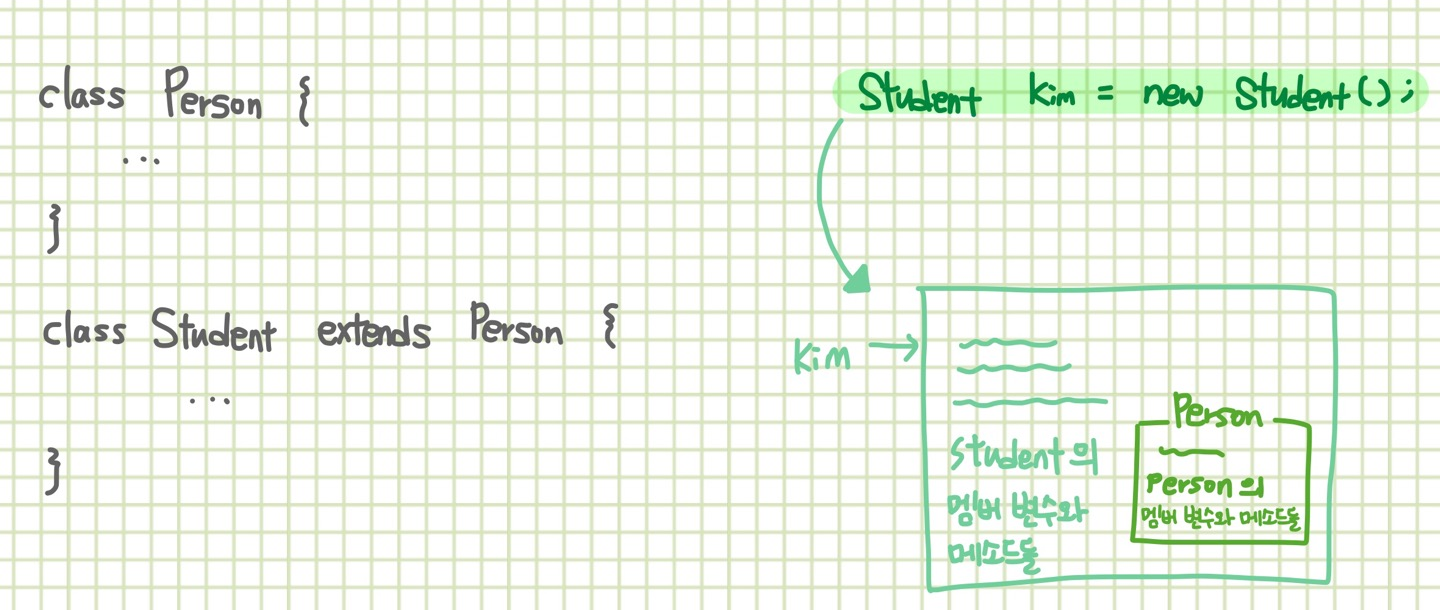 class Person {
...
}
class Student extends Person {
...
}
Student Kim = new Student();
Kim
Student의
멤버 변수와
메소드들
Person
Person의
멤버 변수와 메소드들